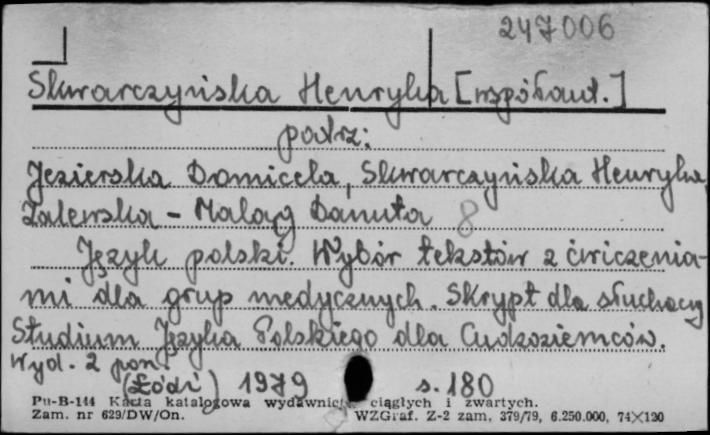 247006
Skwarczyńska Henryka [współaut.]
patrz:
Jezierska Domicela, Skwarczyńska Henryka,
Zalewska - Maląg Danuta 8
Język polski. Wybór tekstów z ćwiczenia-
mi dla grup medycznych. Skrypt dla słuchaczy
Studium Języka Polskiego dla Cudzoziemców.
Wyd. 2 pon.
(Łódź) 1979 s. 180
Pu-B-144 Karta katalogowa wydawnictw ciągłych i zwartych.
Zam. nr 629/DW/On. WZGraf. Z-2 zam. 379/79, 6.250.000, 74×120